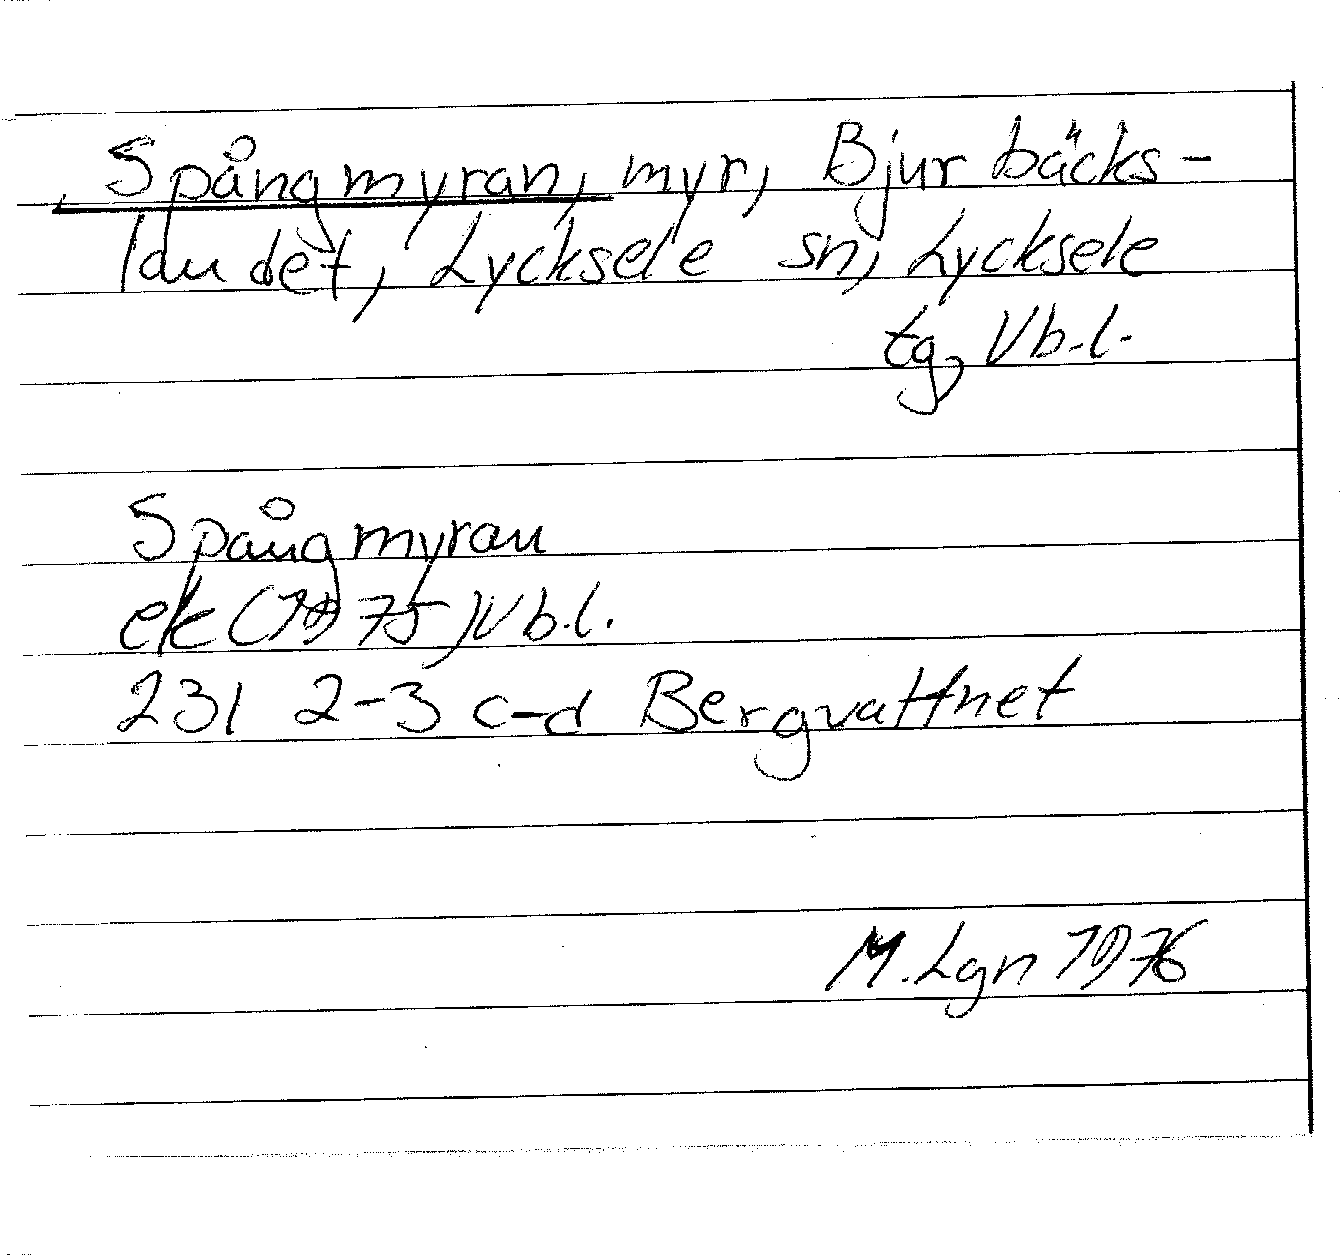 Spångmyran, myr, Bjurbäcks-
landet, Lycksele sn, Lycksele
tg, Vb.l.
Spångmyran
ek (1975) Vb.l.
23I 2-3 c-d Bergvattnet
M. Lgn 1976